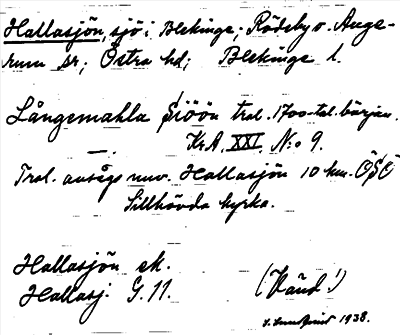 Hallasjön, sjö i Blekinge; Rödeby o. Ange-
rum sr; Östra hd; Blekinge l.
Långemahla Siöön trol. 1700-tal. början.
Kr.A. XXI. N:o 9.
Trol. avsågs nuv. Hallasjön 10 km. ÖSÖ
Sillhövda kyrka.
Hallasjön ek.
Hallasj. G. 11.
(Känd!)
1938.